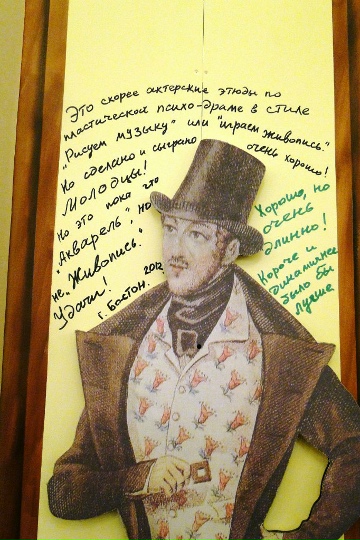 Это скорее актерские этюды по
пластической психо-драме в стиле
"Рисуем музыку" или "играем живопись."
Но сделано и сыграно очень хорошо!
Молодцы!
Но это пока что
"Акварель", но
не "Живопись."
Удачи! 2012
г. Бостон.
Хорошо, но
очень
длинно!
Короче и
динамичнее
было бы
лучше